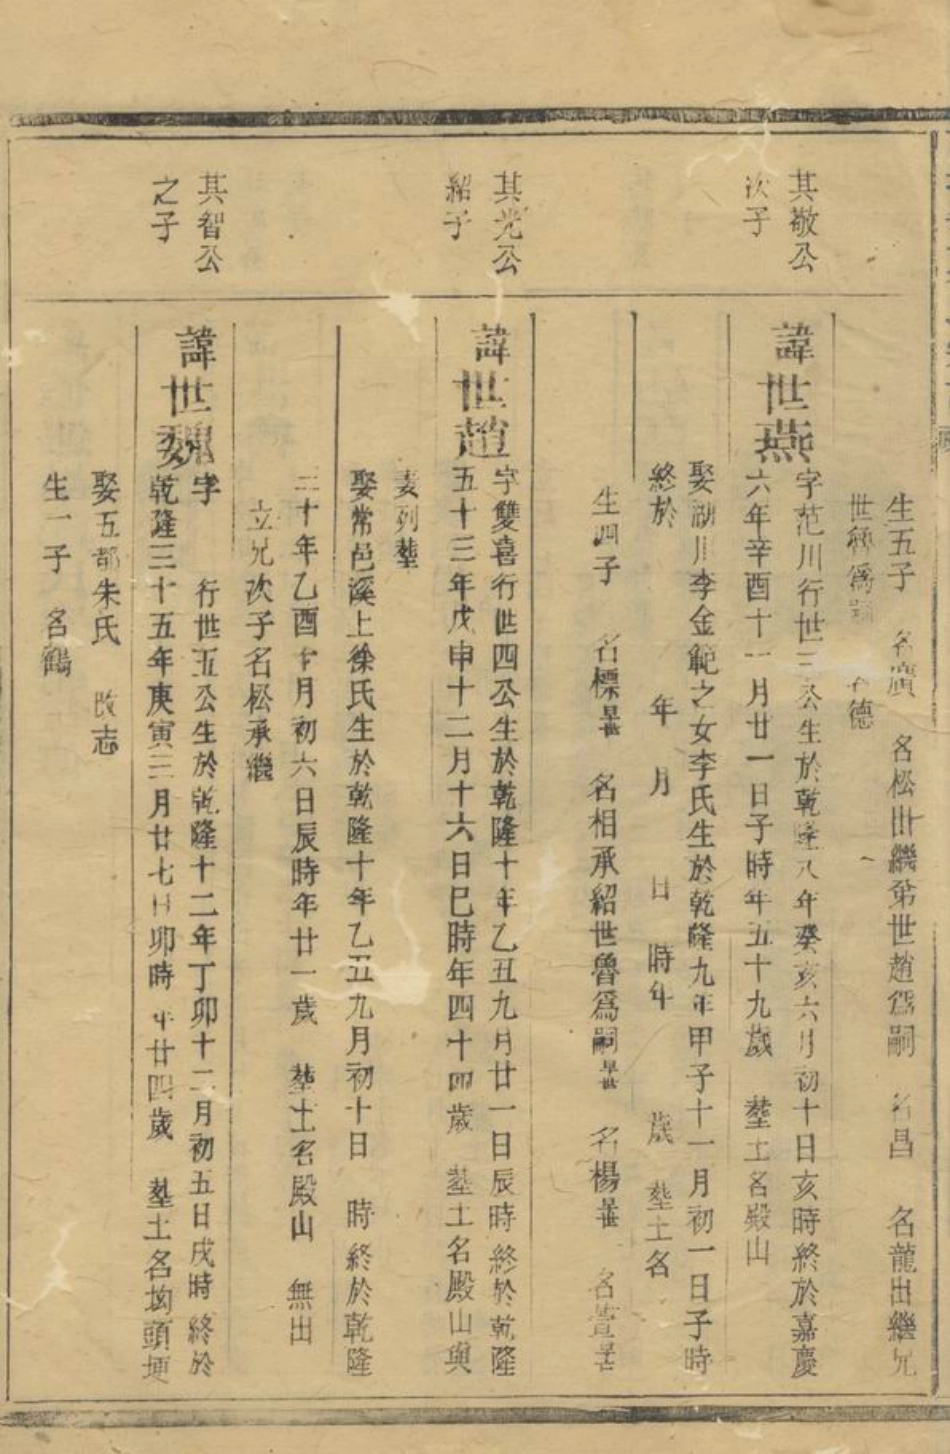 生五子 名廣 名松出繼弟世趙為嗣 名昌 名龍出繼兄
世 為 德
其敬公
次子
諱世燕
字范川行世三公生於乾隆八年癸亥六月初十日亥時終於嘉慶
六年辛酉十一月廿一日子時年五十九歲 塟土名殿山
娶湖川李金範之女李氏生於乾隆九年甲子十一月初一日子時
終於 年 月 日 時年 歲 塟土名
生四子 名標 名相承紹世魯為嗣 名楊 名
其光公
紹子
諱世趙
字雙喜行世四公生於乾隆十年乙丑九月廿一日辰時終於乾隆
五十三年戊申十二月十六日巳時年四十四歲 塟土名殿山與
妻列塟
娶常邑溪上徐氏生於乾隆十年乙丑九月初十日 時終於乾隆
三十年乙酉十月初六日辰時年廿一歲 塟土名殿山 無出
立兄次子名松承繼
其智公
之子
諱世魏
字 行世五公生於乾隆十二年丁卯十二月初五日戌時終於
乾隆三十五年庚寅三月廿七日卯時年廿四歲 塟土名坳頭埂
娶五都朱氏 改志
生一子 名鶴